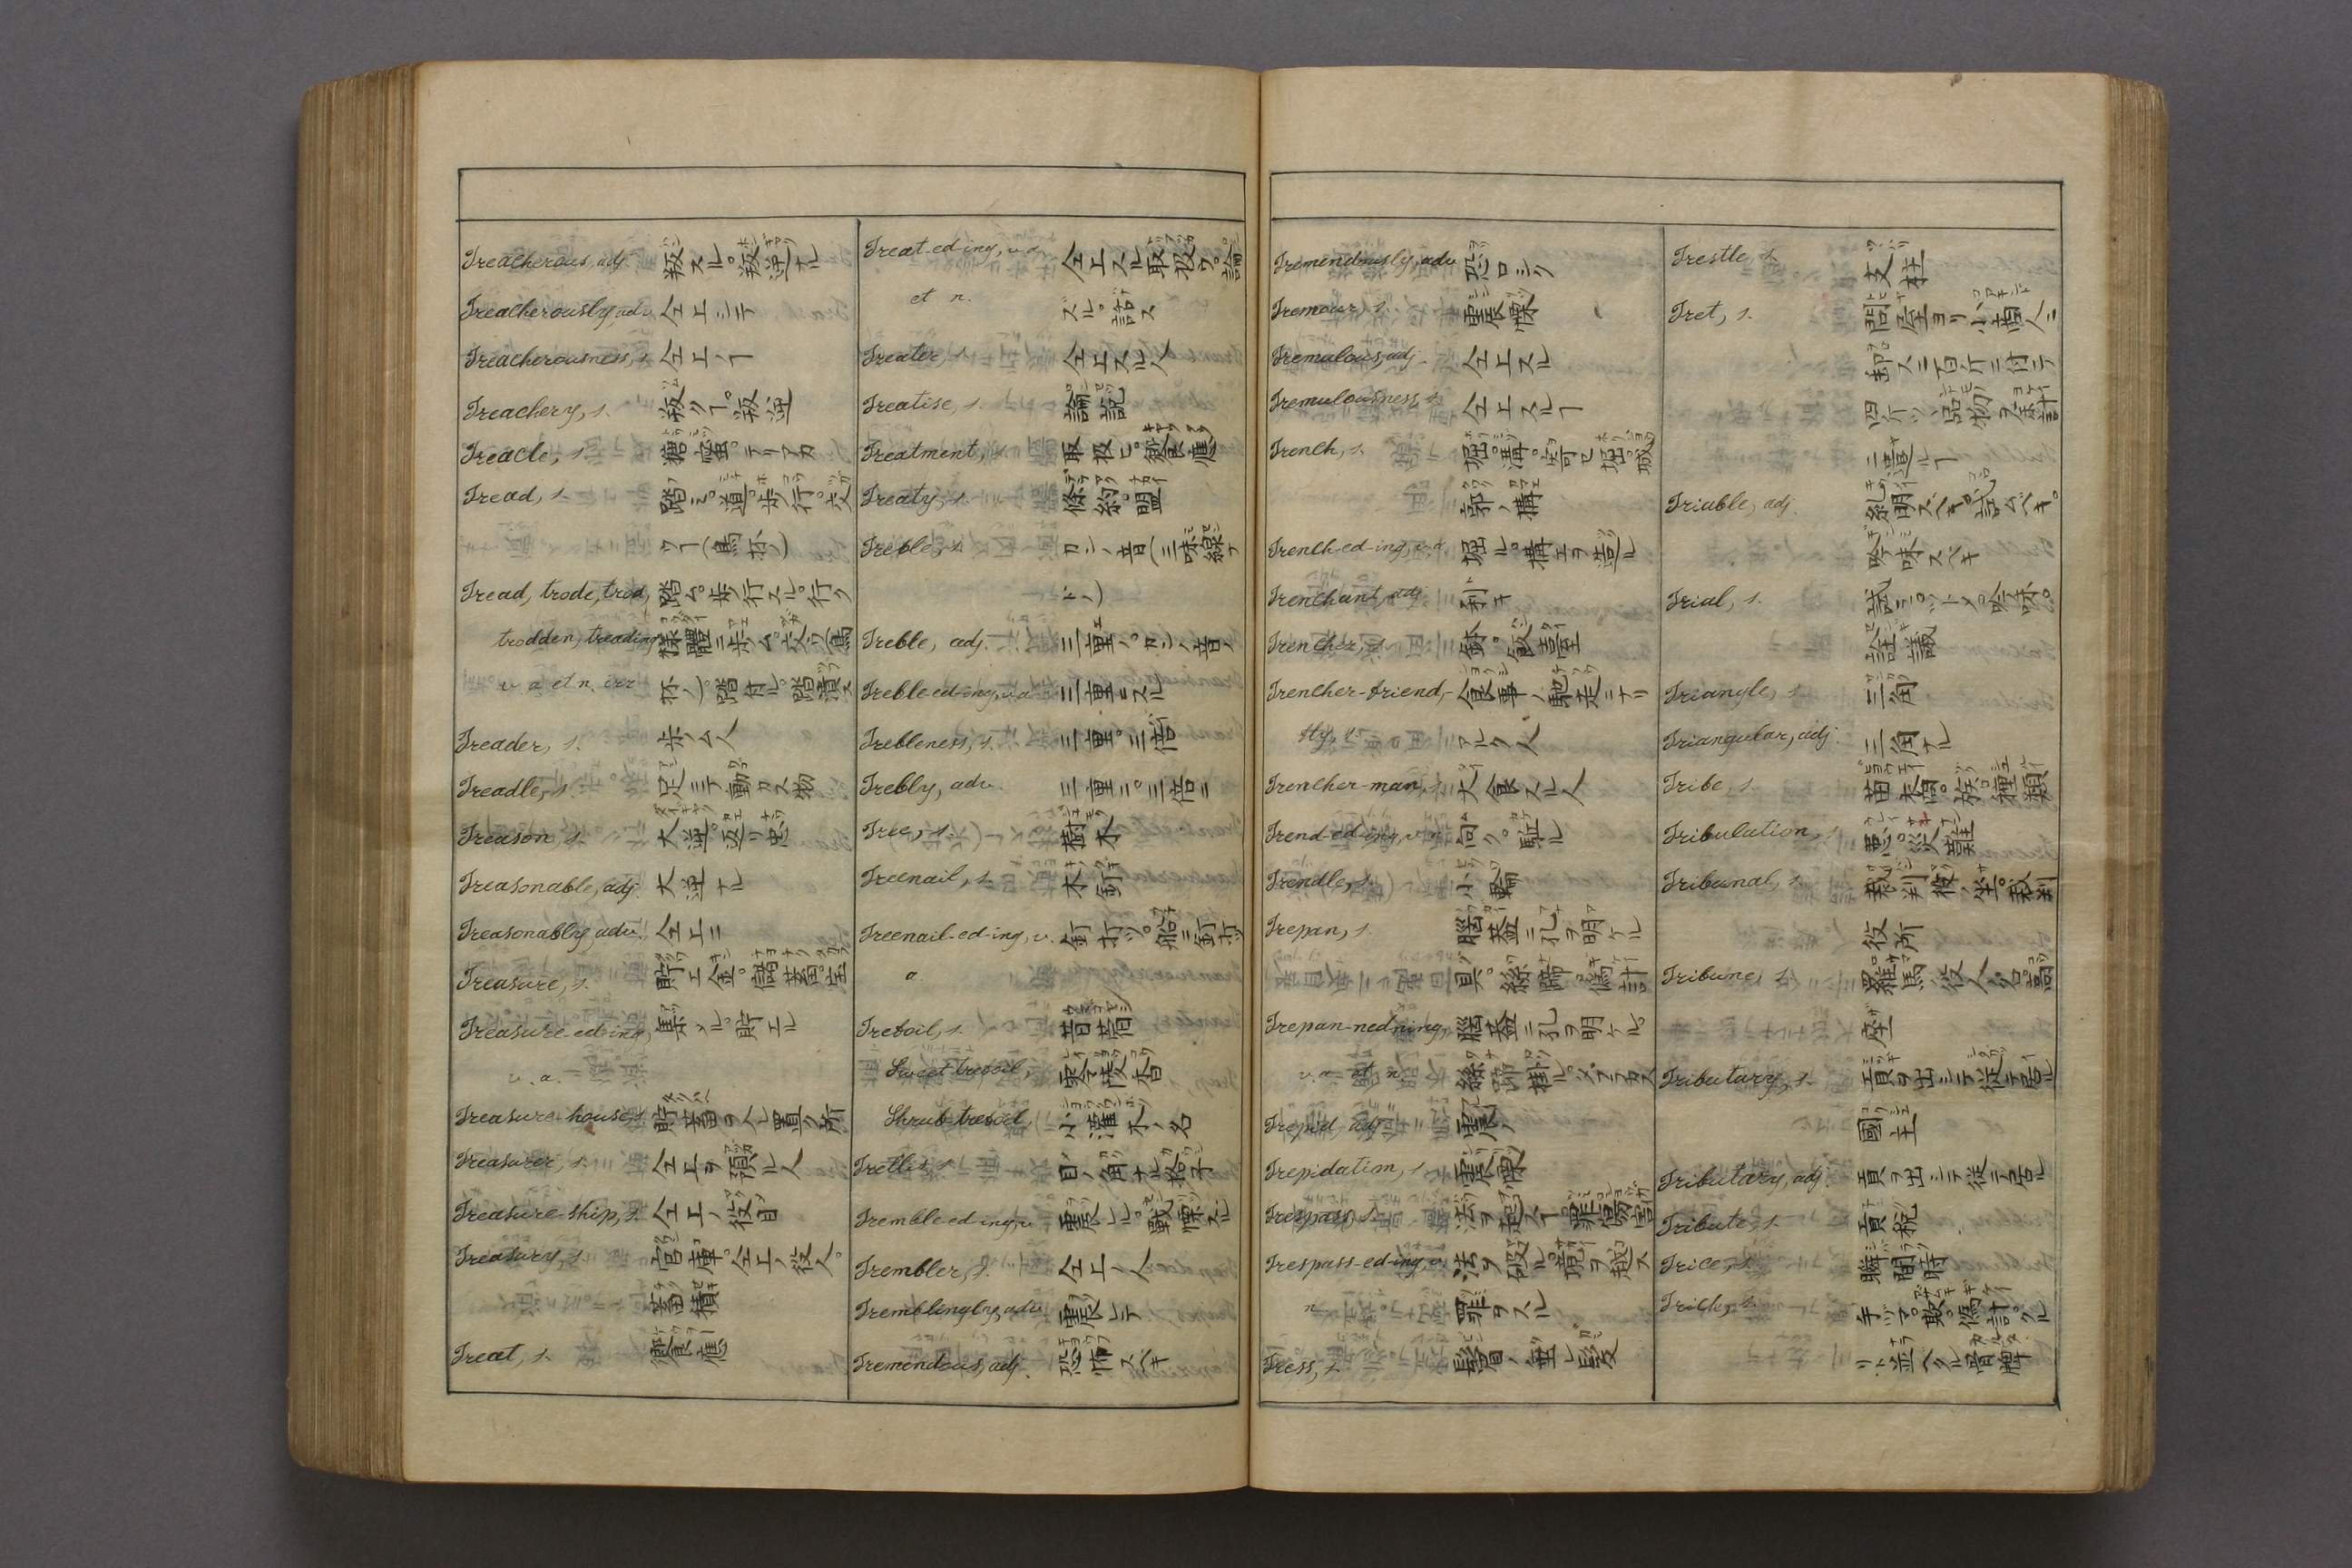 Treacherous, adj. 叛スル。叛逆ナル
Treacherously, adv. 仝上シテ
Treacherousness, s. 仝上ノヿ
Treachery, s. 叛クヿ。叛逆
Treacle, s. 糖蜜。テリアカ
Tread, s. 踏ミ。道。歩行。交
ワヿ(鳥抔ノ)
Tread, trode, trod, 踏ム。歩行スル。行ク
trodden, treading, 裸體ニ歩ム。交ル(鳥
v. a. et n. irr. 抔ノ)。踏付ル。踏潰ス
Treader, s. 歩ム人
Treadle, s. 足ニテ動カス物
Treason, s. 大逆。返リ忠
Treasonable, adj. 大逆ナル
Treasonably, adv. 仝上ニ
Treasure, s. 貯エ金。儲蓄。宝
Treasure-ed-ing, 集メル。貯エル
v. a.
Treasure-house, s. 貯蓄ヲ入レ置ク所
Treasurer, s. 仝上ヲ預ル人
Treasure-ship, s. 仝上ノ役目
Treasury, s. 官庫。仝上ノ役人。
蓄積
Treat, s. 饗應
Treat-ed-ing, v. a. 仝上スル取扱フ。論
et n. ズル。談ス
Treater, s. 仝上スル人
Treatise, s. 論説
Treatment, s. 取扱ヒ。饗應
Treaty, s. 條約。盟
Treble, s. カンノ音(三味線ナ
ドノ)
Treble, adj. 三重ノ。カンノ音ノ
Treble-ed-ing, v. a. 三重ニスル
Trebleness, s. 三重。三倍
Trebly, adv. 三重ニ。三倍ニ
Tree, s. 樹木
Treenail, s. 木釘
Treenail-ed-ing, v. 釘打ツ。船ニ釘打ツ
a.
Trefoil, s. 苜蓿
Sweet trefoil, 零陵香
Shrub trefoil, 小灌木ノ名
Trellis, s. 目ノ角ナル格子
Tremble-ed-ing, v. 震ヒル。戦慄スル
Trembler, s. 仝上ノ人
Tremblingly, adv. 震ヒテ
Tremendous, adj. 恐怖スベキ
Tremendously, adv. 恐ロシク
Tremour, s. 震慄
Tremulous, adj. 仝上スル
Tremulousness, s. 仝上スルヿ
Trench, s. 堀。溝。寄セ堀。城
郭ノ構
Trench-ed-ing, v. a. 堀ル。構エヲ造ル
Trenchant, adj. 利キ
Trencher, s. 鉢。飯臺
Trencher-friend, 食事ノ馳走ニナリ
-fly, s. ニアルク人
Trencher-man, s. 大食スル人
Trend-ed-ing, v. n. 向ク。駈ル
Trendle, s. 小輪
Trepan, s. 腦蓋ニ孔ヲ明ケル
具。係蹄。偽計
Trepan-ned-ning, 腦蓋ニ孔ヲ明ケル。
v. a. et n. 係蹄ニ掛ル。
Trepid, adj. 震ノ
Trepidation, s. 震慄
Trespass, s. 法ヲ越スヿ。罪。傷害
Trespass-ed-ing, v. 法ヲ破ル。境ヲ越ス
n. 罪ヲスル
Tress, s. 髷ノ垂レ髪
Trestle, s. 支柱
Tret, s. 問屋ヨリ小商人ニ
卸スニ百斤ニ付テ
四斤ツヽ品物ヲ余計
ニ遣ルヿ
Triable, adj. 糺明スベキ。試ムベキ。
吟味スベキ
Trial, s. 試ミ。ツトメ。吟味。
詮議
Triangle, s. 三角
Triangular, adj. 三角ナル
Tribe, s. 苗裔。族。種類
Tribulation, s. 患。災難
Tribunal, s. 裁判役ノ坐。裁判
役所
Tribune, s. 羅馬ノ役人ノ名。高
座
Tributary, s. 貢ヲ出シテ従テ居ル
國主
Tributary, adj. 貢ヲ出シテ従テ居ル
Tribute, s. 貢税
Trice, s. 瞬間時
Trick, s. 手ヅマ。欺。偽計。クル
リト並ベタル骨牌